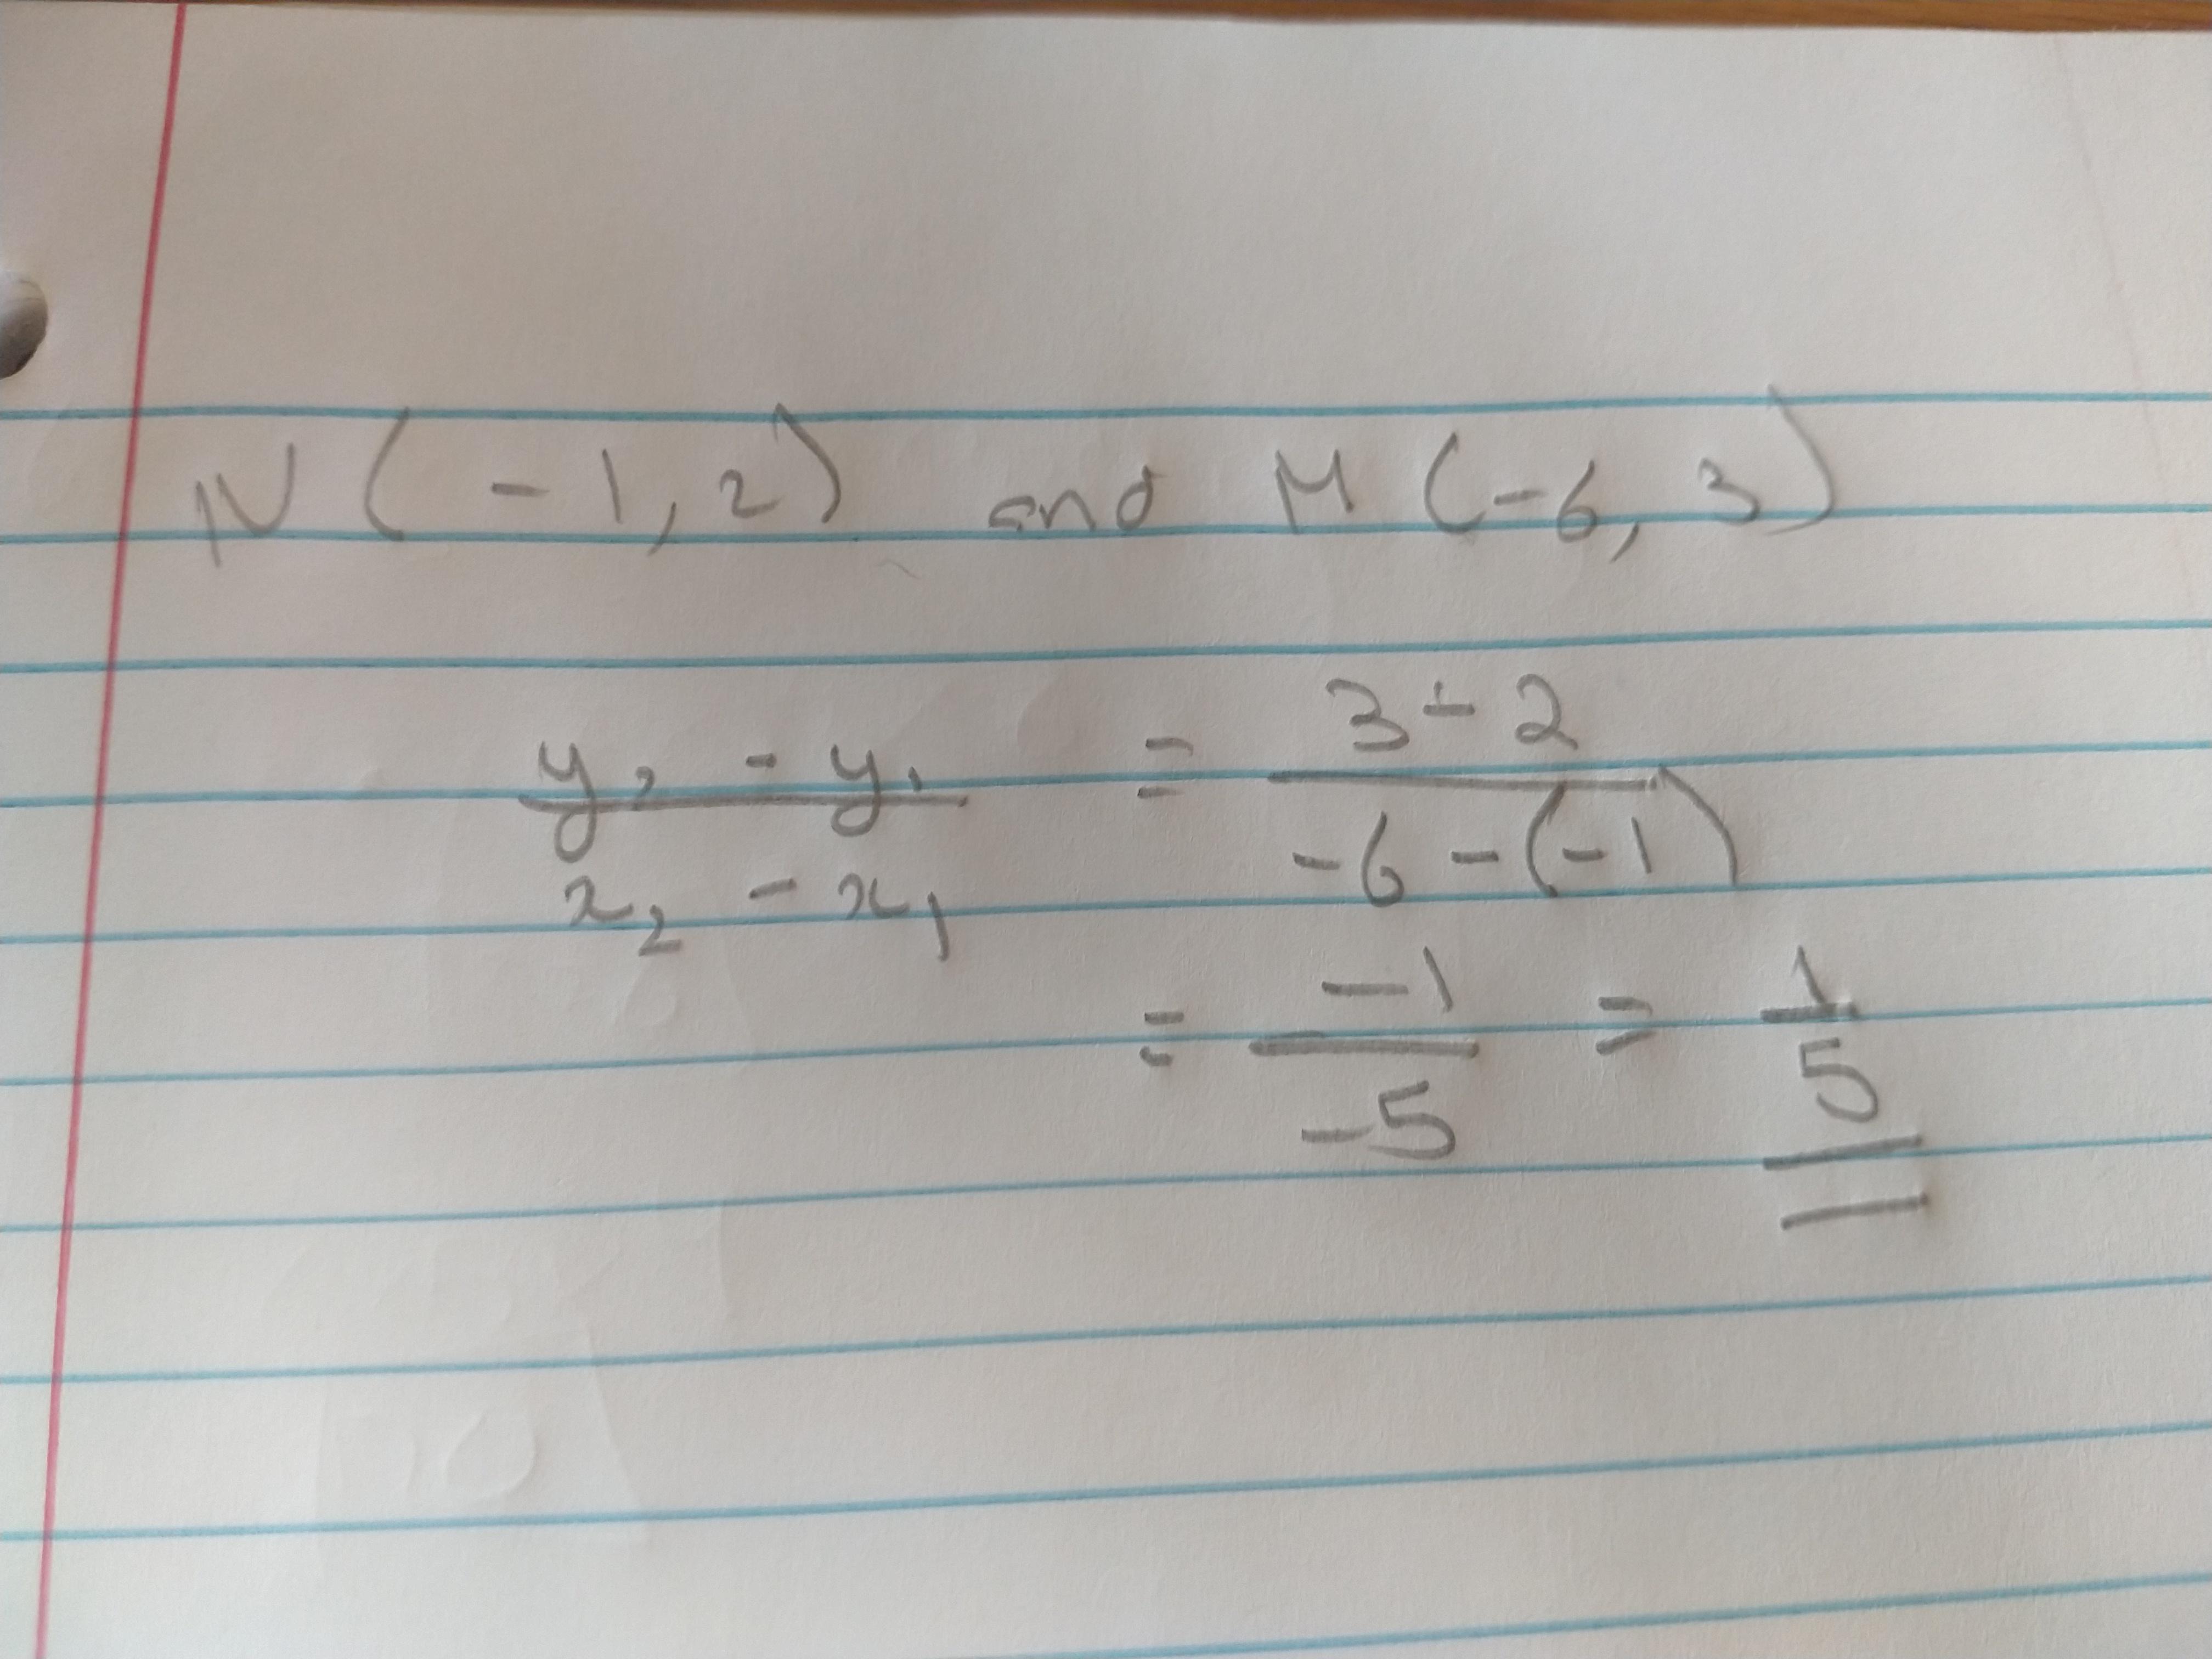 N(-1,2) and M(-6,3)
y₂ - y₁ / x₂ - x₁ = 3 - 2 / -6 - (-1)
= -1 / -5 = 1 / 5